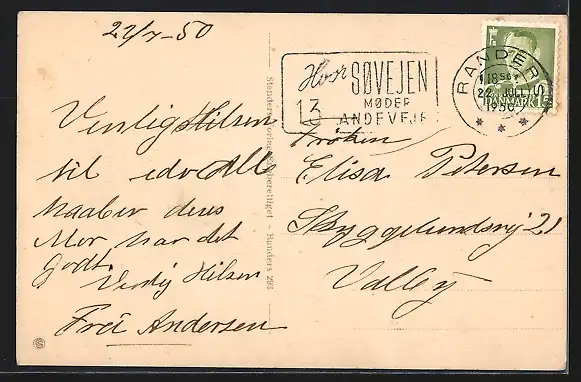 22/7-50
Venlig Hilsen
til eder Alle
haaber deres
Mor har det
godt.
Venlig Hilsen
Frei Andersen
Stenders Forlag Eneberettiget - Randers 293
Hvor SØVEJEN
13 MØDER
LANDEVEJEN
RANDERS
22. JULI
1950
DANMARK
Frøken
Elisa Petersen
Skyggelundsvej 21
Valby